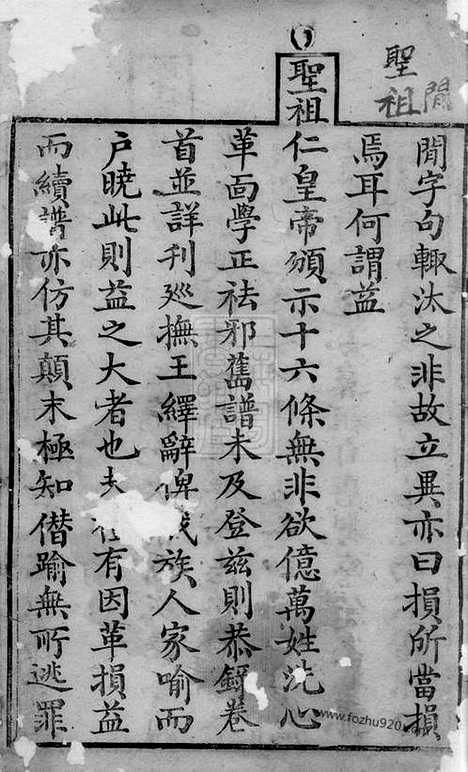 閒
聖祖
閒字句輙汰之非故立異亦曰損所當損
焉耳何謂益
聖祖仁皇帝頒示十六條無非欲億萬姓洗心
革面學正祛邪舊譜未及登兹則恭錄卷
首並詳刊廵撫王繹辭俾族人家喻而
户曉此則益之大者也夫有因革損益
而續譜亦仿其顛末極知僭踰無所逃罪
www.fozhu920.com